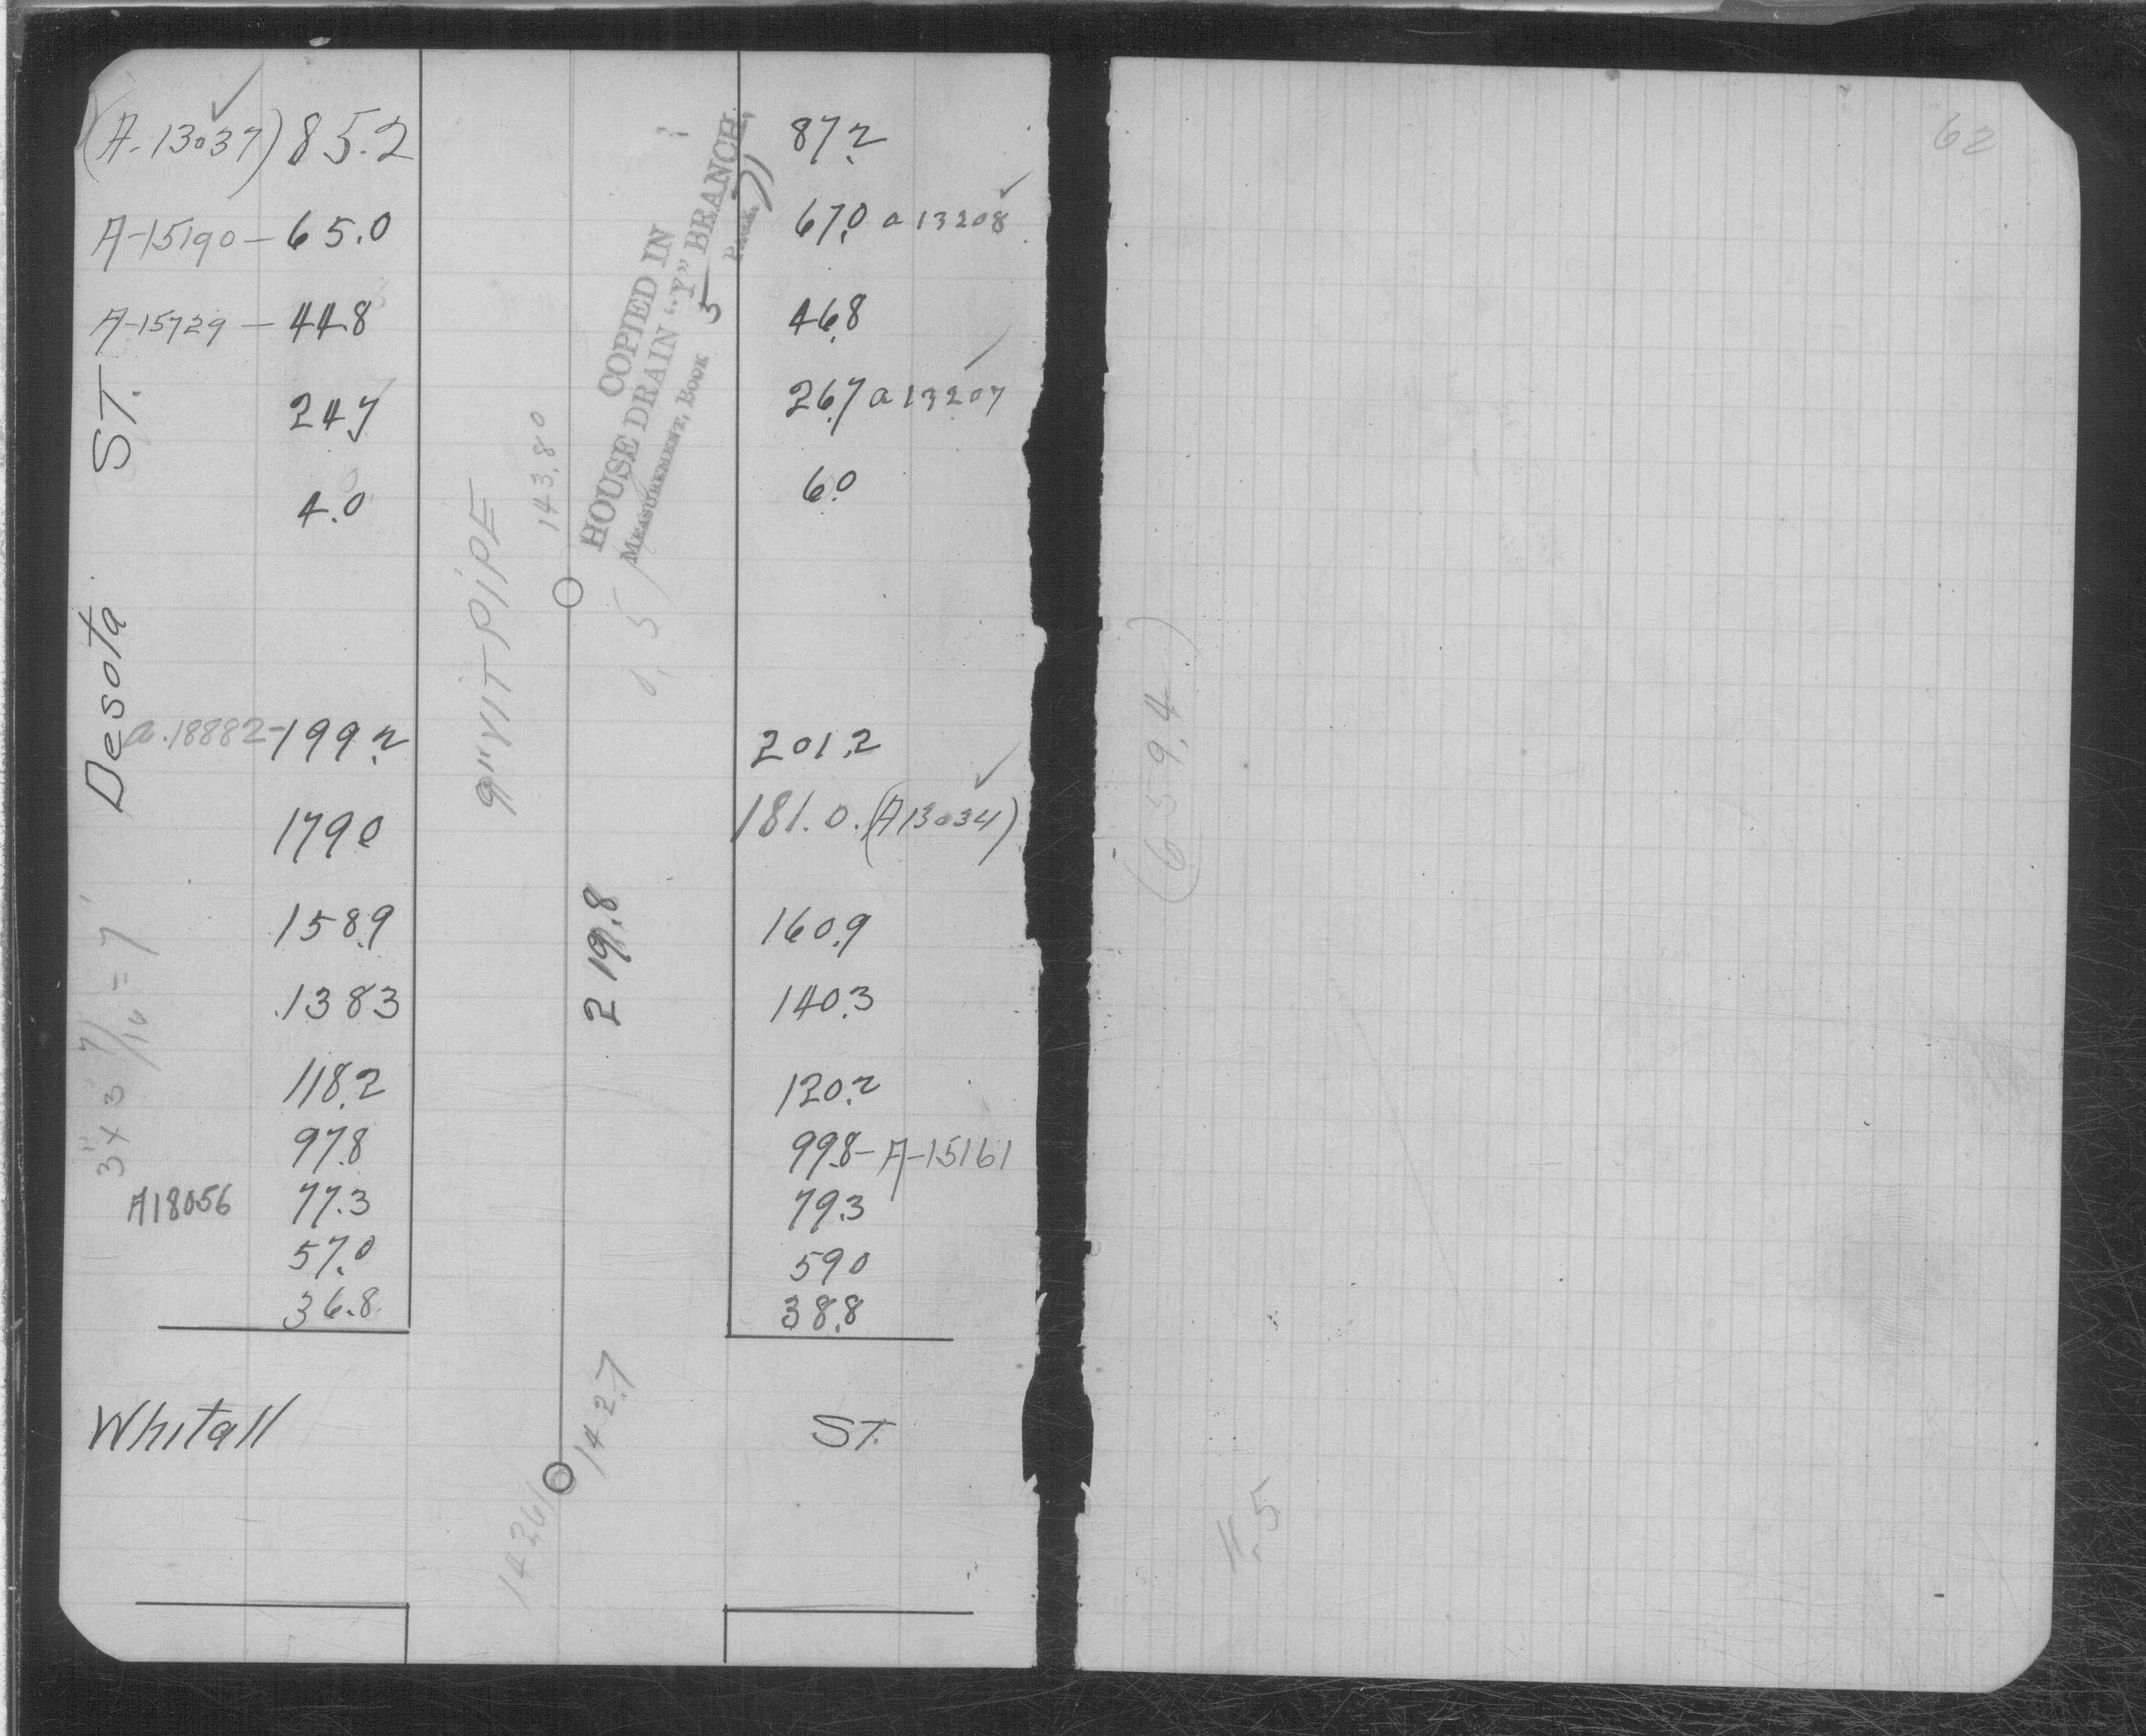 (A. 13037) 85.2
87.2
A-15190 - 65.0
67.0 a 13208
A-15729 - 44.8
46.8
24.7
26.7 a 13207
4.0
6.0
Desota ST.
9" VIT PIPE
143.80
COPIED IN
HOUSE DRAIN "Y" BRANCH,
MEASUREMENT, BOOK 5 PAGE 71
a. 18882 - 199.2
201.2
179.0
181.0. (A13034)
158.9
160.9
138 3
140.3
118.2
120.2
97.8
99.8 - A-15161
A18056 77.3
79.3
57.0
59 0
36.8
38.8
219.8
3" x 3 7/16 = 7'
Whitall ST.
142.7
62
(659.4)
11.5